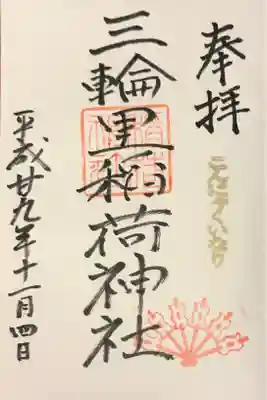 奉拝
こんにゃくいなり
三輪里稲荷神社
平成廿九年十一月四日